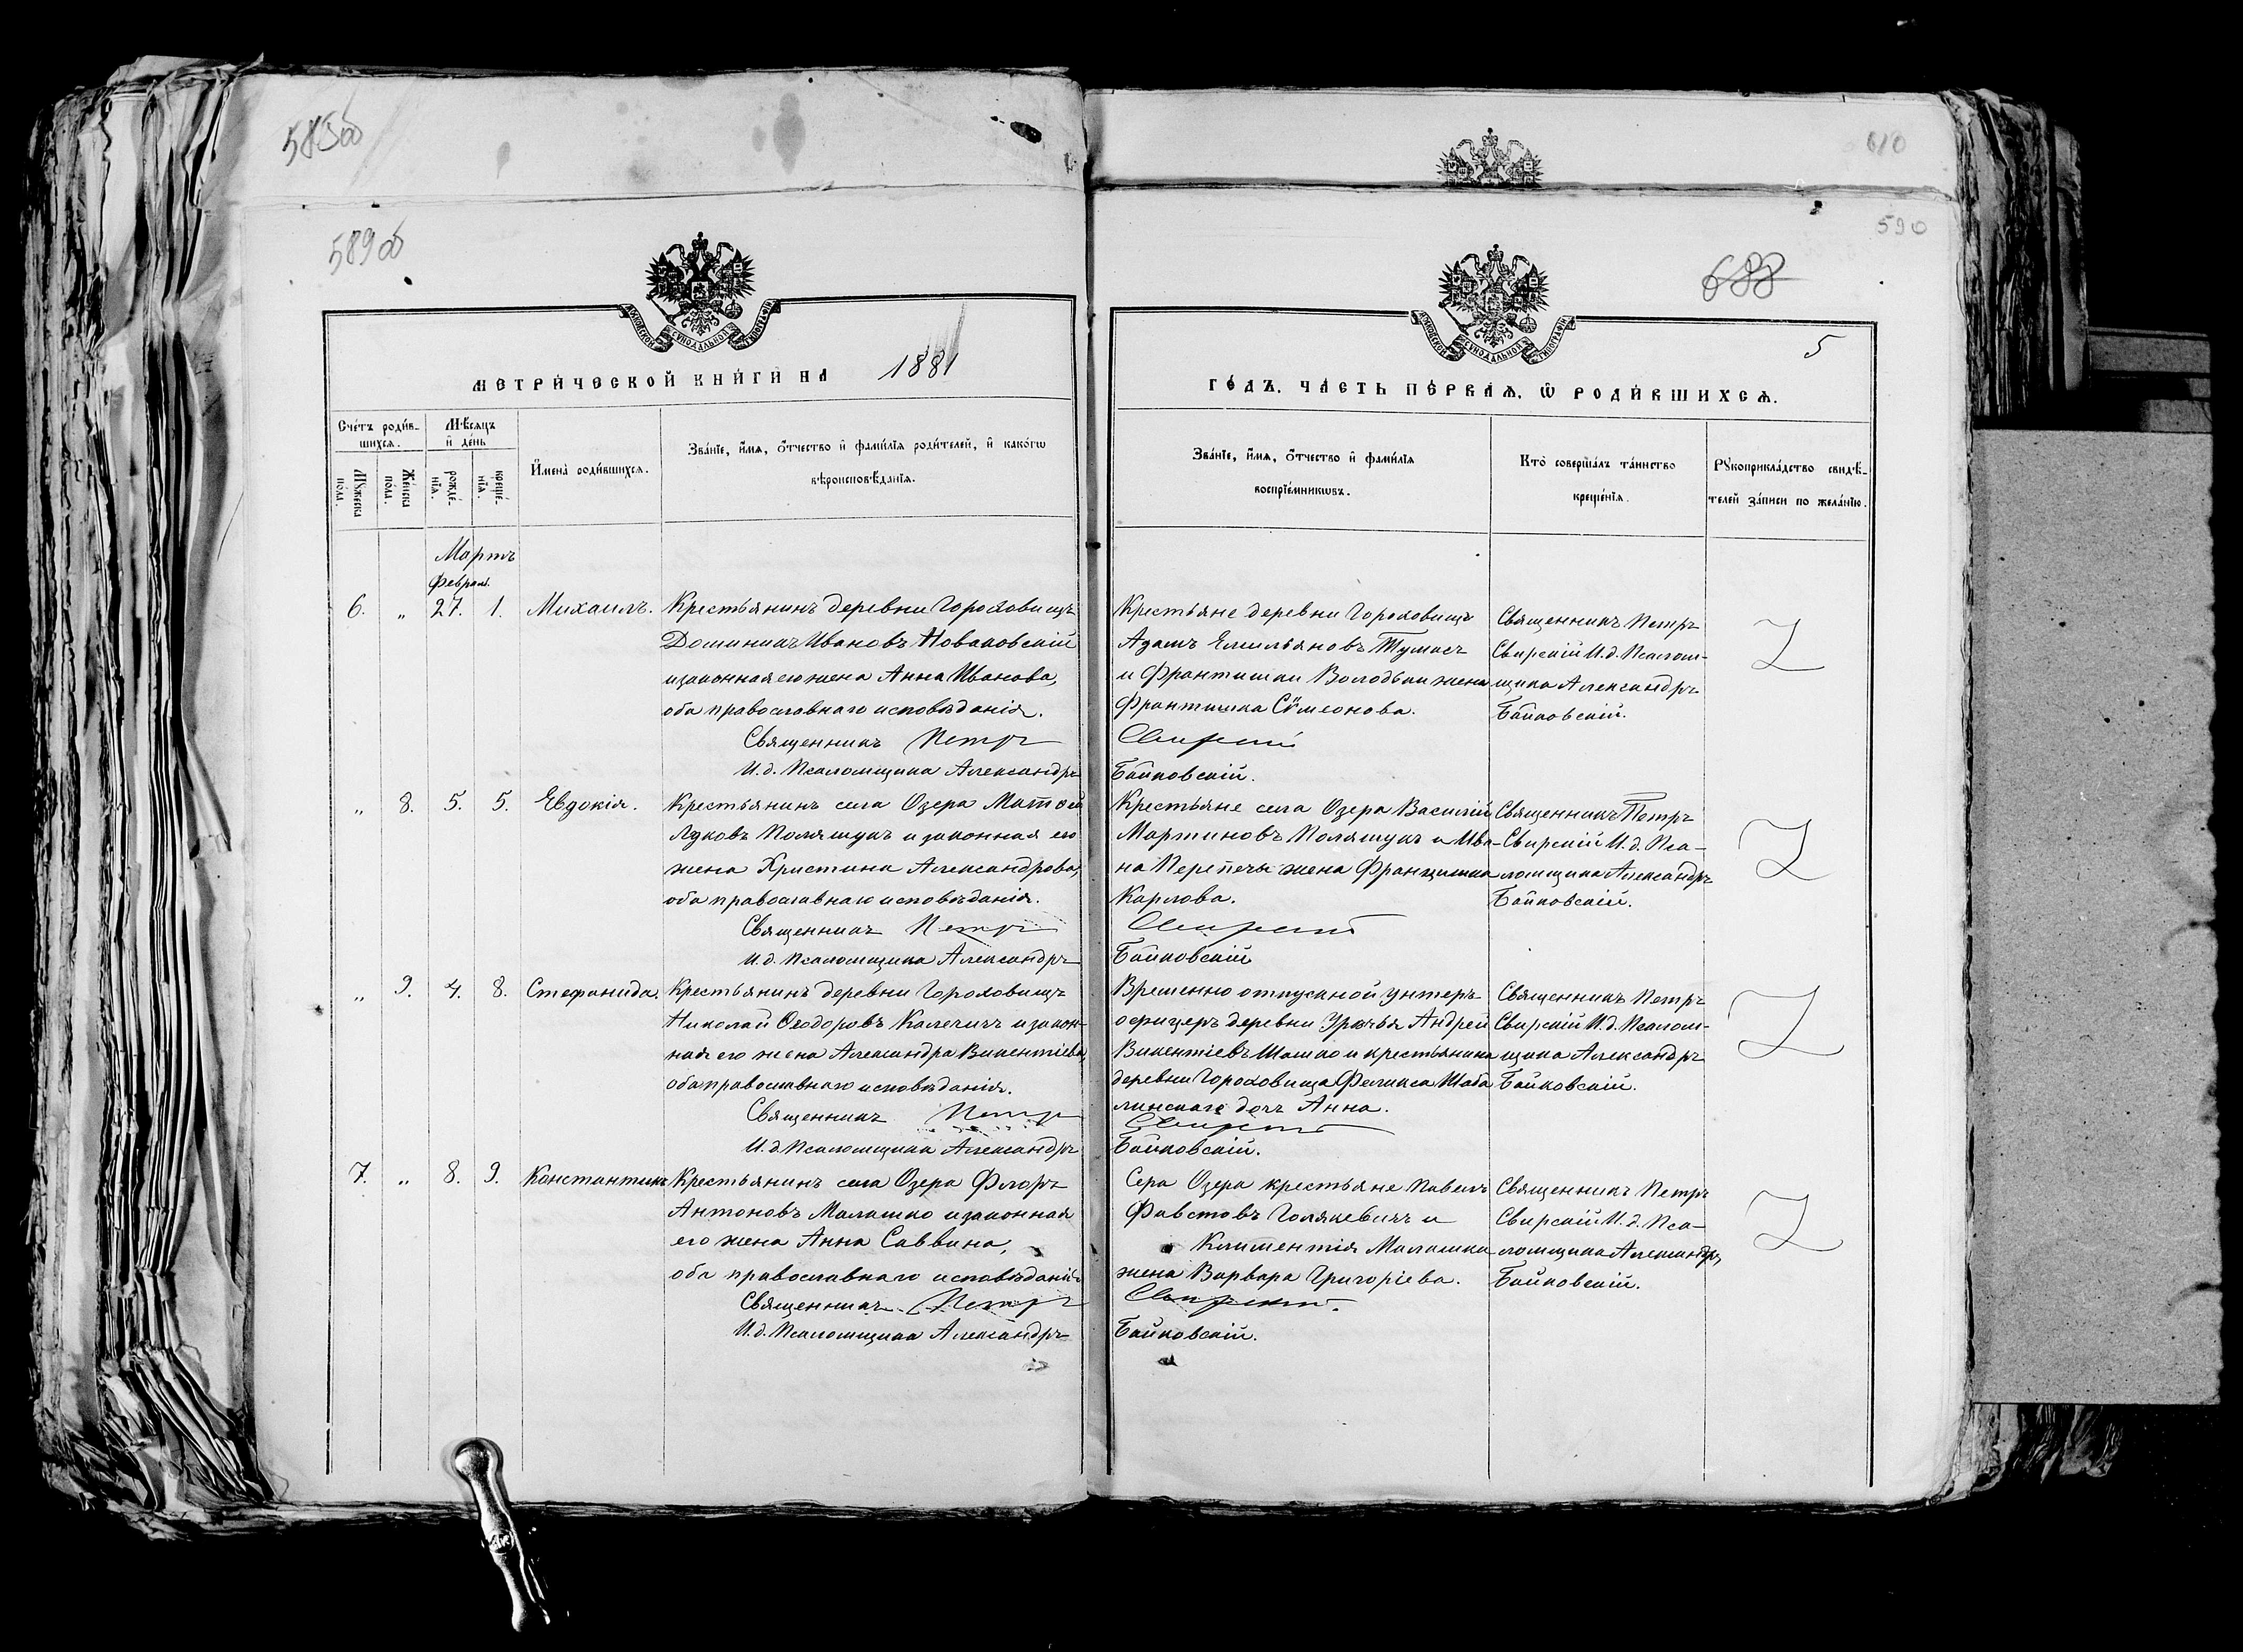 583об
610
589об
590
688
5
МЕТРИЧЕСКОЙ КНИГИ НА 1881
ГОДЪ. ЧАСТЬ ПЕРВАЯ, Ѡ РОДИВШИХСЯ.
Счетъ родив-
шихся.
Мѣсяцъ
и день
Мужеска
пола.
Женска
пола.
рожде-
нія.
креще-
нія.
Имена родившихся.
Званіе, имя, отчество и фамилія родителей, и какогѡ
вѣроисповѣданія.
Званіе, имя, отчество и фамилія
воспріемниковъ.
Кто совершалъ таинство
крещенія.
Рукоприкладство свидѣ-
телей записи по желанію.
Мартъ
Феврал.
6. „ 27. 1. Михаилъ.
Крестьянинъ деревни Гороховищъ
Доминикъ Ивановъ Новаковскій
и законная его жена Анна Иванова,
оба православнаго исповѣданія.
Священникъ Петръ
И.д. Псаломщика Александръ
Крестьяне деревни Гороховищъ
Адамъ Емильяновъ Тумасъ
и Франтишки Володьки жена
Франтишка Сѵмеонова.
Свирскій
Байковскій.
Священникъ Петръ
Свирскій И.д. Псалом-
щика Александръ
Байковскій.
„ 8. 5. 5. Евдокія.
Крестьянинъ села Озера Матѳей
Луковъ Полящукъ и законная его
жена Христина Александрова,
оба православнаго исповѣданія.
Священникъ Петръ
И.д. Псаломщика Александръ
Крестьяне села Озера Василій
Мартиновъ Полящукъ и Ива-
на Перепечы жена Францишка
Карлова.
Свирскій
Байковскій
Священникъ Петръ
Свирскій И.д. Пса-
ломщика Александръ
Байковскій.
„ 9. 4. 8. Стефанида.
Крестьянинъ деревни Гороховищъ
Николай Ѳеодоровъ Калечицъ и закон-
ная его жена Александра Викентіева,
оба православнаго исповѣданія.
Священникъ Петръ
И.д. Псаломщика Александръ
Временно отпускной унтеръ-
офицеръ деревни Уречья Андрей
Викентіевъ Машко и крестьянина
деревни Гороховища Феликса Шаба
линскаго дочь Анна.
Свирскій
Байковскій.
Священникъ Петръ
Свирскій И.д. Псалом-
щика Александръ
Байковскій.
7. „ 8. 9. Константинъ
Крестьянинъ села Озера Флоръ
Антоновъ Малашко и законная
его жена Анна Саввина,
оба православнаго исповѣданія
Священникъ Петръ
И.д. Псаломщика Александръ
Села Озера крестьяне Павелъ
Фавстовъ Голякевичъ и
Климентія Малашка
жена Варвара Григоріева.
Свирскій.
Байковскій.
Священникъ Петръ
Свирскій И.д. Пса-
ломщика Александръ,
Байковскій.